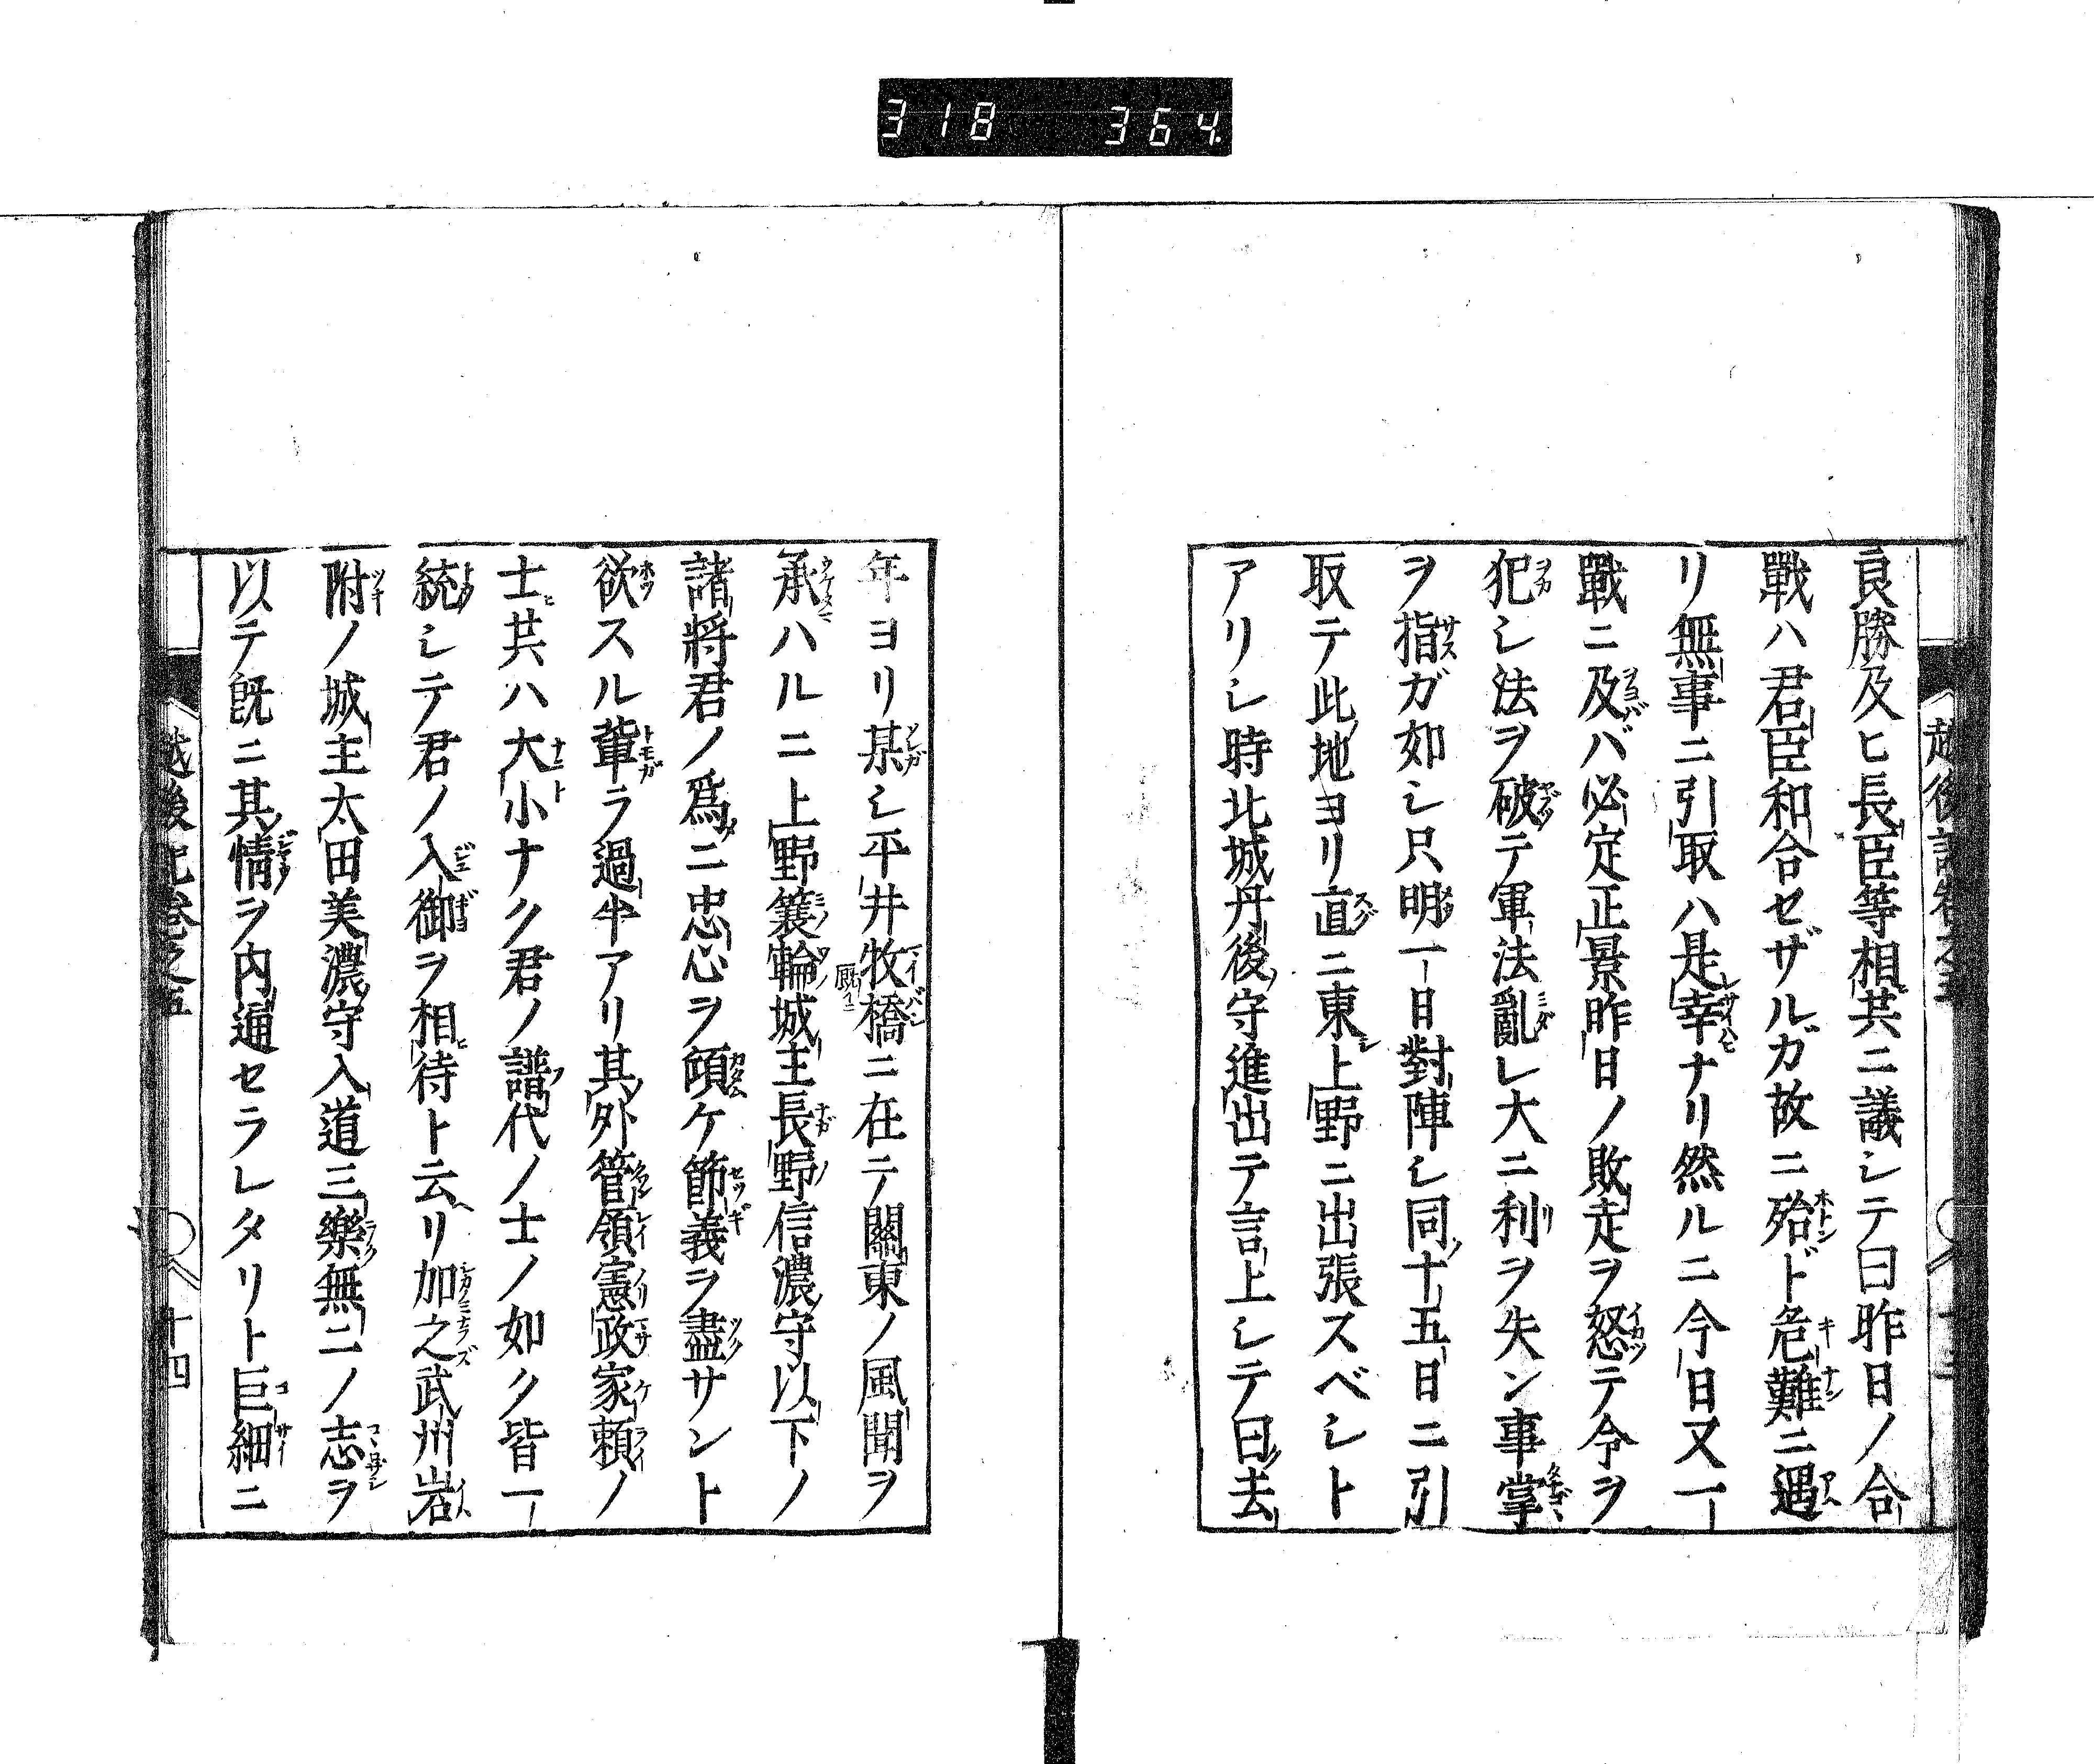 318 364
良勝及ヒ長臣等相共ニ議シテ曰昨日ノ合
戰ハ君臣和合セザルガ故ニ殆ド危難ニ遇
リ無事ニ引取ハ是幸ナリ然ルニ今日又一
戰ニ及バ必定正景昨日ノ敗走ヲ怒テ令ヲ
犯シ法ヲ破テ軍法亂レ大ニ利ヲ失ン事掌
ヲ指ガ如シ只明一日對陣シ同十五日ニ引
取テ此地ヨリ直ニ東上野ニ出張スベシト
アリシ時北城丹後守進出テ言上シテ曰去
年ヨリ某シ平井牧橋ニ在テ關東ノ風聞ヲ
承ハルニ上野簑輪城主長野信濃守以下ノ
諸將君ノ爲ニ忠心ヲ傾ケ節義ヲ盡サント
欲スル輩ラ過半アリ其外管領憲政家頼ノ
士共ハ大小ナク君ノ譜代ノ士ノ如ク皆一
統シテ君ノ入御ヲ相待ト云リ加之武州岩
附ノ城主太田美濃守入道三樂無二ノ志ヲ
以テ既ニ其情ヲ内通セラレタリト巨細ニ
越後記巻之五 十四